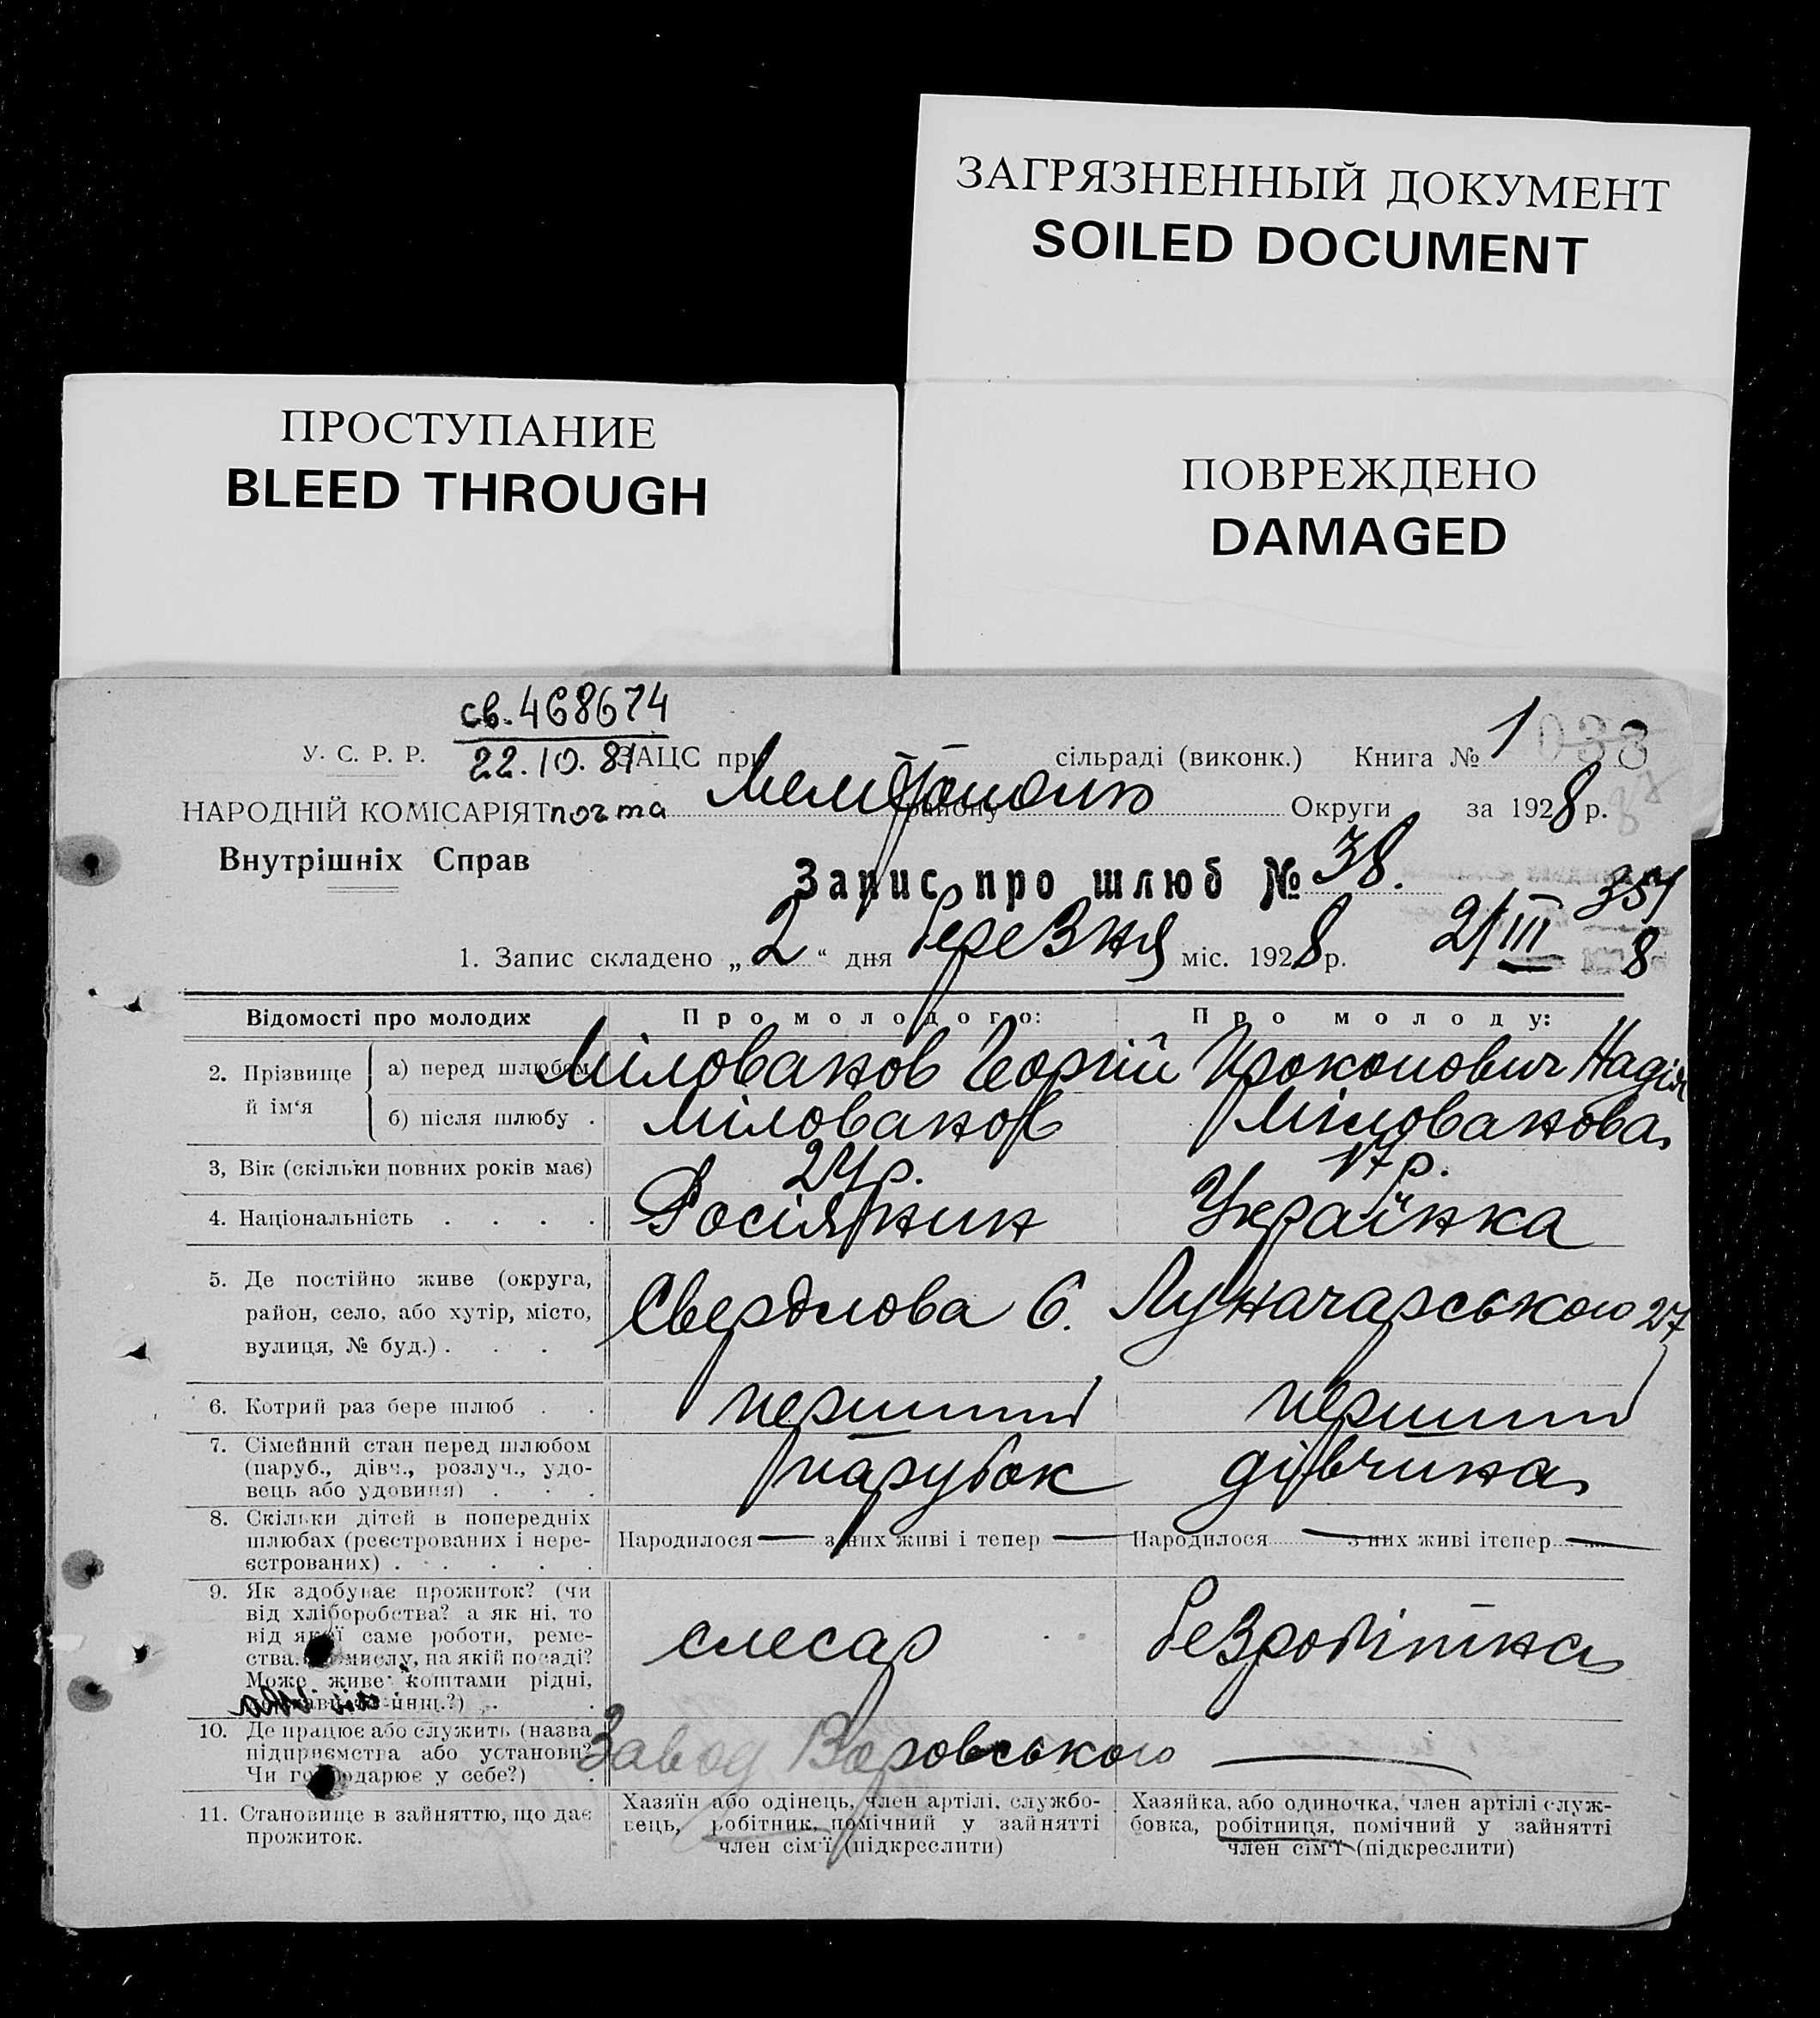 ЗАГРЯЗНЕННЫЙ ДОКУМЕНТ
SOILED DOCUMENT
ПРОСТУПАНИЕ
BLEED THROUGH
ПОВРЕЖДЕНО
DAMAGED
св. 468674
22.10.81
У. С. Р. Р. ЗАЦС при сільраді (виконк.) Книга № 1
НАРОДНІЙ КОМІСАРІЯТ почта району Округи за 1928 р.
Внутрішніх Справ
Запис про шлюб № 38.
351
1. Запис складено „2“ дня березня міс. 1928 р. 2/III 8
Відомості про молодих Про молодого: Про молоду:
2. Прізвище й ім‘я
а) перед шлюбом Мілованов Георгій Прокопович Надія
б) після шлюбу Мілованов Мілованова
3, Вік (скільки повних років має) 24 р. 17 р.
4. Національність Росіянин Українка
5. Де постійно живе (округа,
район, село, або хутір, місто,
вулиця, № буд.) Свердлова 6. Луначарського 27
6. Котрий раз бере шлюб перший перший
7. Сімейний стан перед шлюбом
(паруб., дівч., розлуч., удо-
вець або удовиця) парубок дівчина
8. Скільки дітей в попередніх
шлюбах (реєстрованих і нере-
єстрованих)
Народилося — з них живі і тепер — Народилося — з них живі ітепер —
9. Як здобуває прожиток? (чи
від хліборобства? а як ні, то
від якої саме роботи, реме-
ства, промислу, на якій посаді?
Може живе коштами рідні,
слесар безробітна
10. Де працює або служить (назва
підприємства або установи?
Чи господарює у себе?)
Завод Воровського —
11. Становище в зайняттю, що дає
прожиток.
Хазяїн або одінець, член артілі, службо-
вець, робітник, помічний у зайнятті
член сім‘ї (підкреслити)
Хазяйка, або одиночка, член артілі служ-
бовка, робітниця, помічний у зайнятті
член сім‘ї (підкреслити)